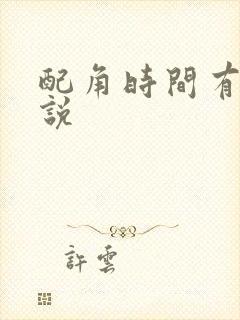 配角時間有
説
許雲